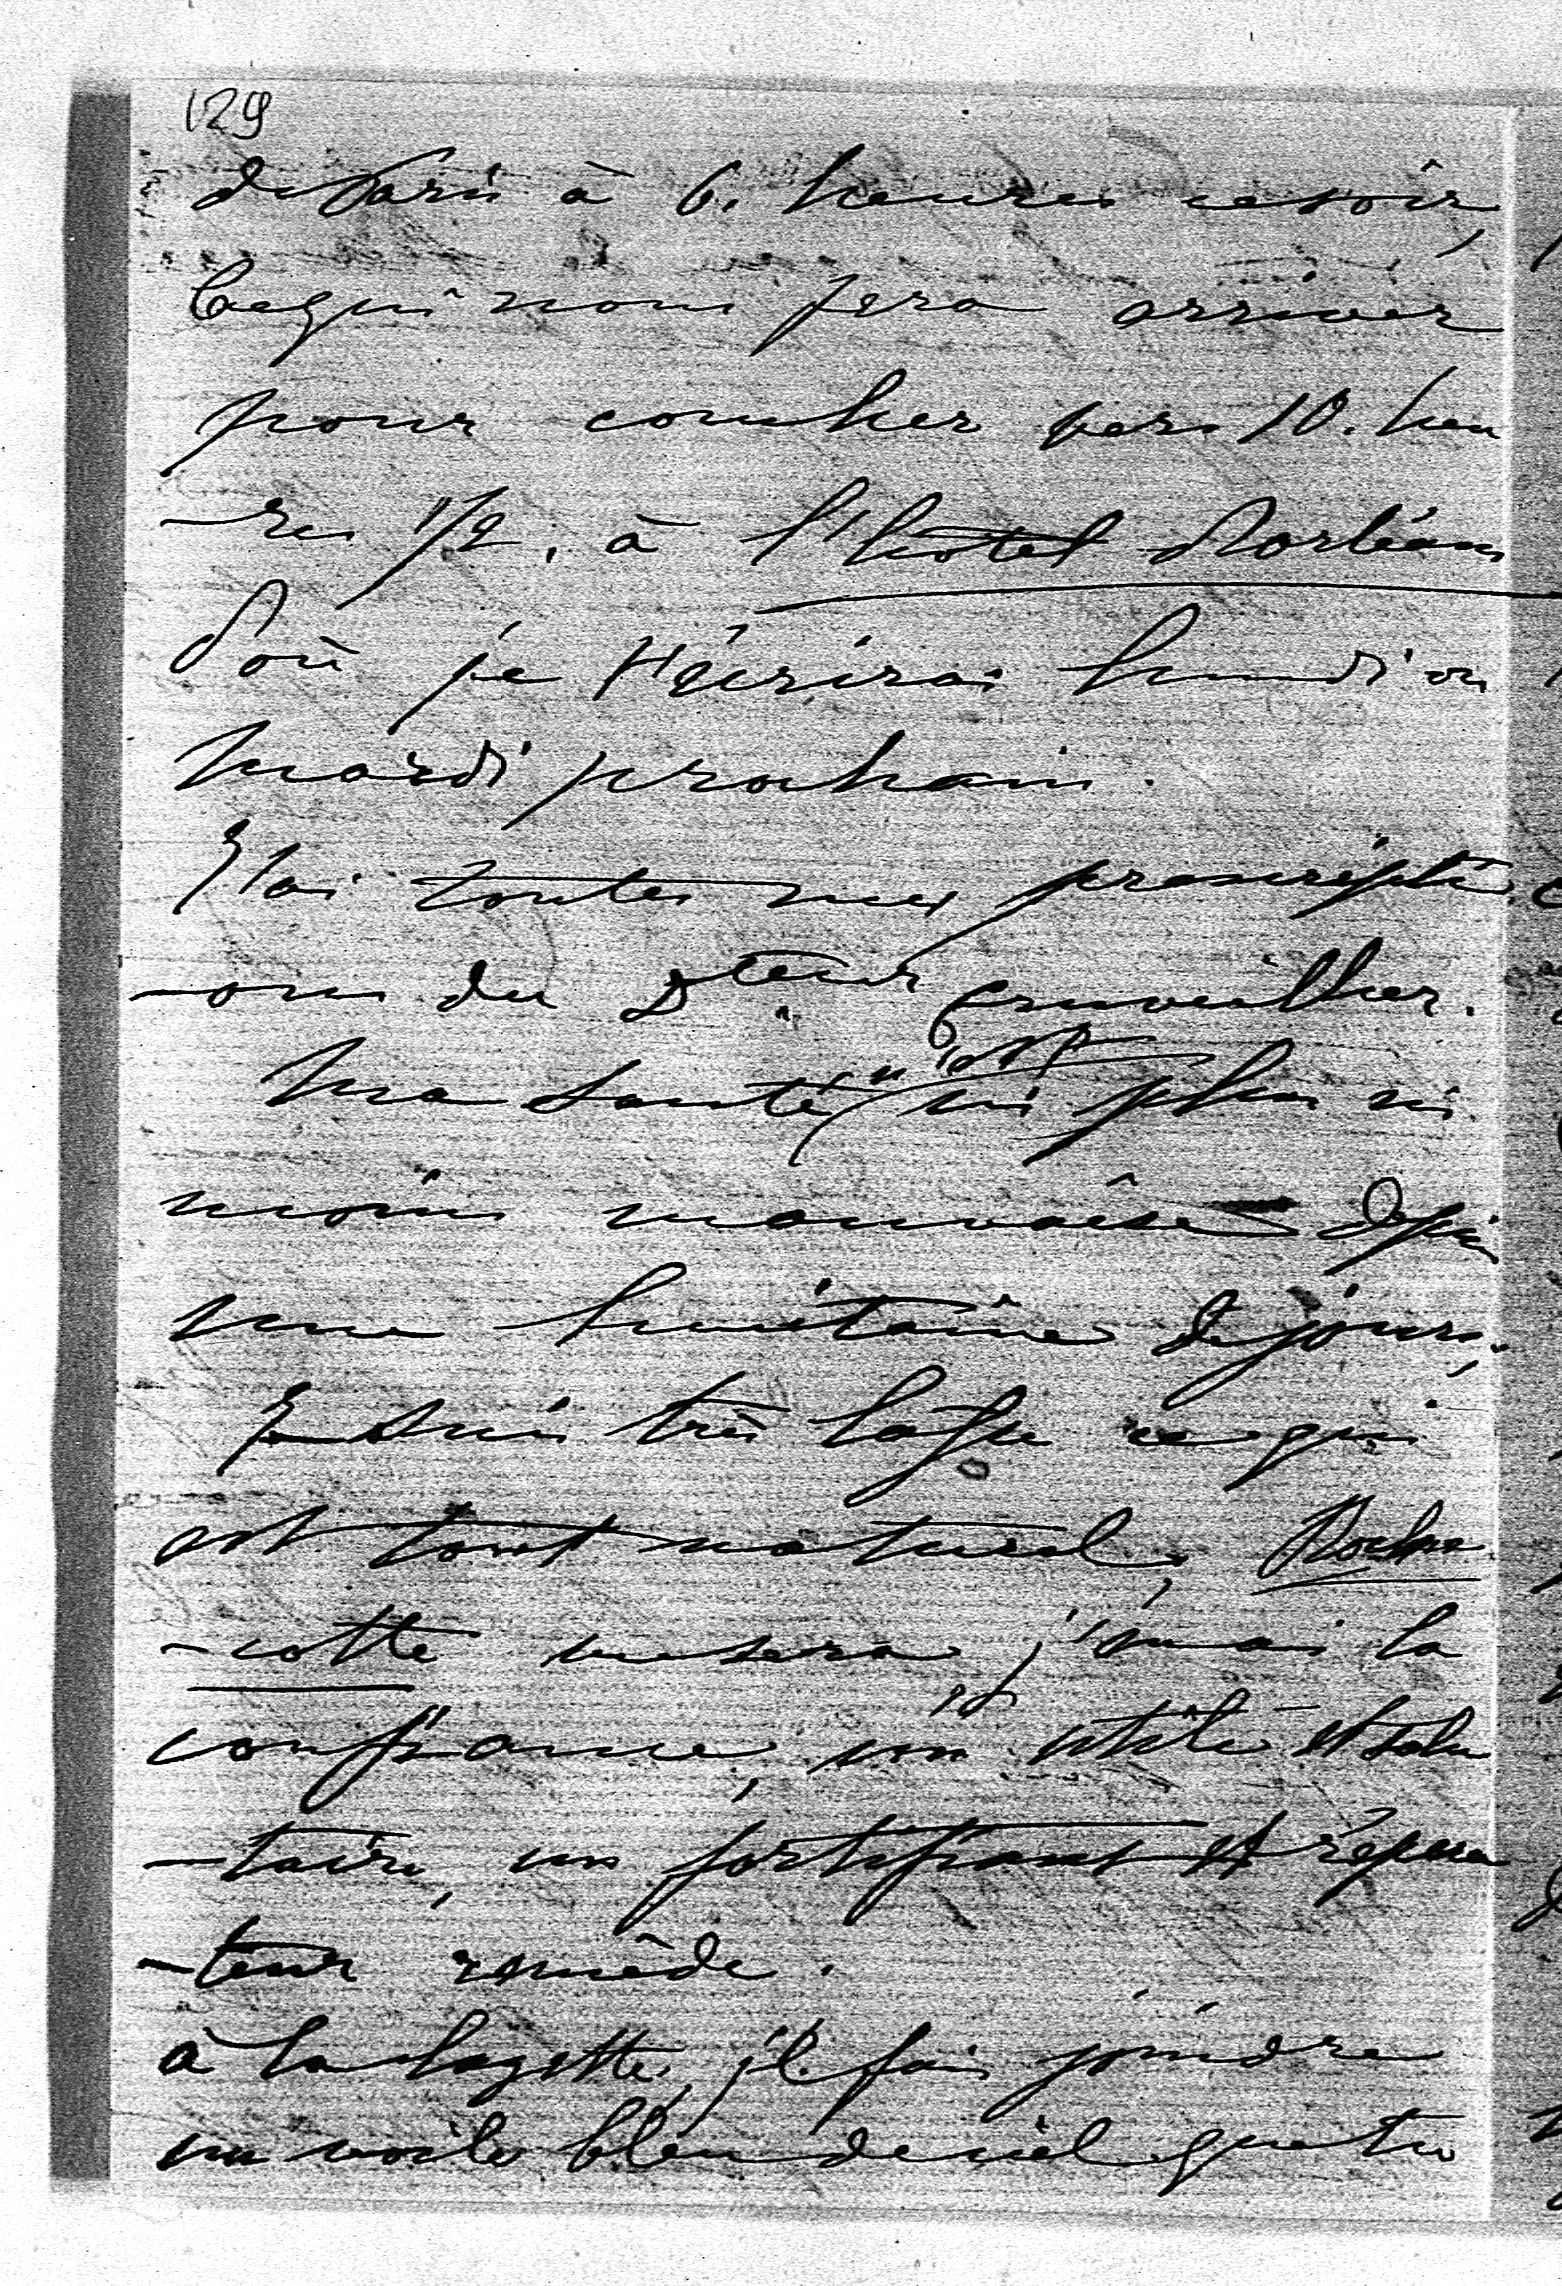 129
de Paris à 6. heures ce soir,
Ce qui nous fera arriver
pour coucher vers 10. heu
-res 1/2. à l'hôtel d'orléans
d'où je t'écrirai lundi ou
mardi prochain.
J'ai toutes mes prescripti
-ons du Dteur Cruveilher.
Ma santé n'est ni plus ni
moins mauvaise depuis
une huitaine de jours,
Je suis très lasse ce qui
est tout naturel, Roche
-cotte me sera j'en ai la
confiance, un utile et salu
-taire, un fortifiant et répara
-teur remède.
à la layette, j'ai fai joindre
un voile bleu de ciel que tu